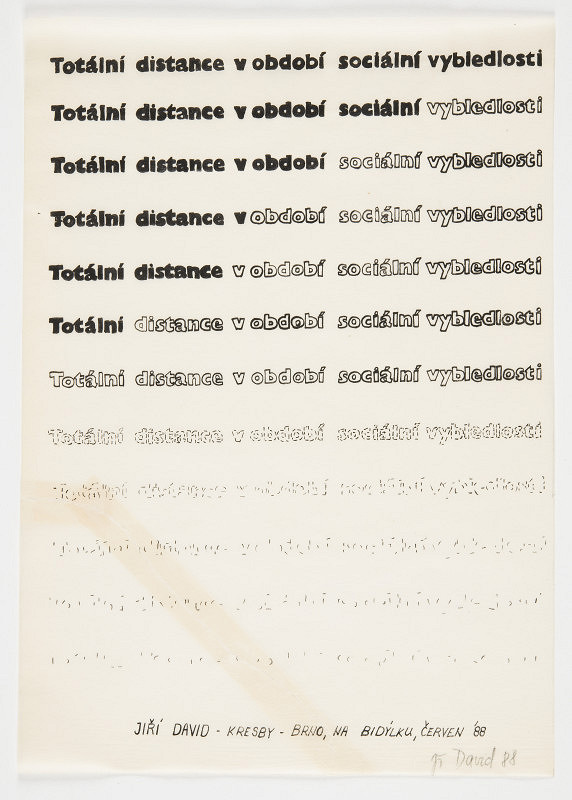 Totální distance v období sociální vybledlosti
Totální distance v období sociální vybledlosti
Totální distance v období sociální vybledlosti
Totální distance v období sociální vybledlosti
Totální distance v období sociální vybledlosti
Totální distance v období sociální vybledlosti
Totální distance v období sociální vybledlosti
Totální distance v období sociální vybledlosti
JIŘÍ DAVID - KRESBY - BRNO, NA BIDÝLKU, ČERVEN '88
David 88